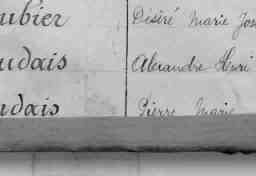 ubier Désiré Marie Jos
udais Alexandre Henri
udais Pierre Marie